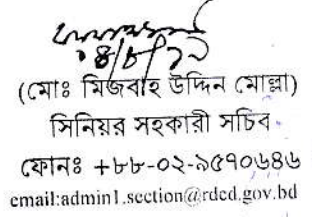 ০৪/৮/১৯
(মোঃ মিজবাহ উদ্দিন মোল্লা)
সিনিয়র সহকারী সচিব
ফোনঃ +৮৮-০২-৯৫৭০৬৪৬
email:admin1.section@rdcd.gov.bd